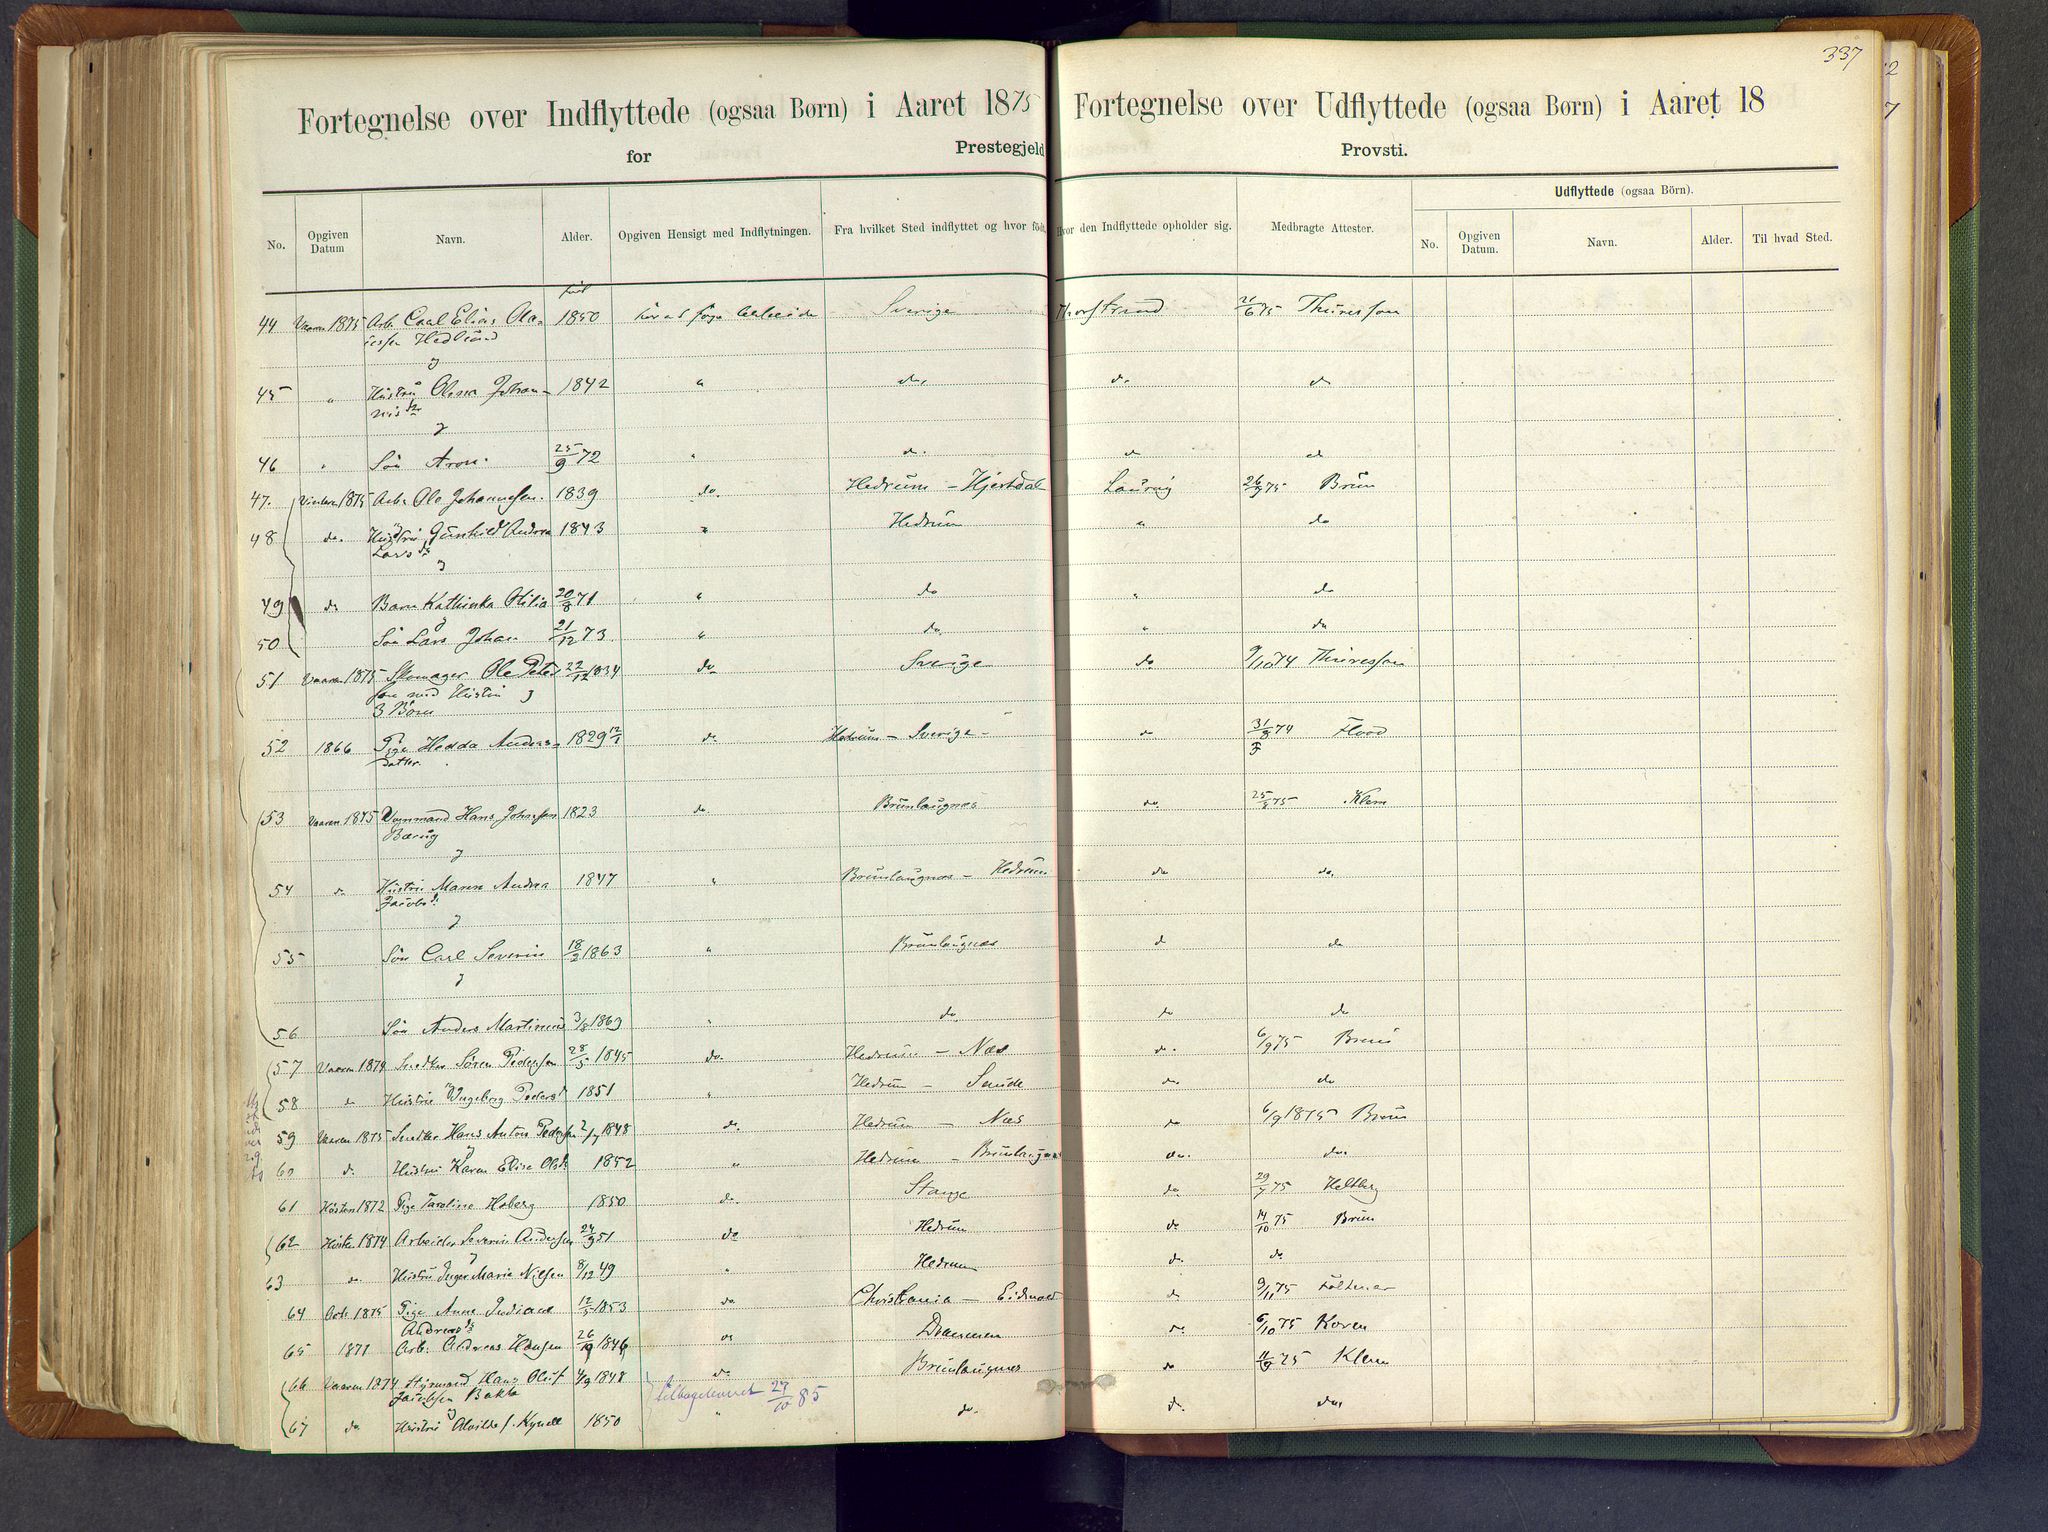 337
Fortegnelse over Indflyttede (ogsaa Børn) i Aaret 1875 Fortegnelse over Udflyttede (ogsaa Børn) i Aaret 18
for Prestegjeld Provsti.
Udflyttede (ogsaa Börn).
No. Opgiven Datum Navn. Alder. Opgiven Hensigt med Indflytningen. Fra hvilket Sted indflyttet og hvor föd. Hvor den Indflyttede opholder sig. Medbragte Attester. No. Opgiven Datum. Navn. Alder. Til hvad Sted.
född
44 Vaaren 1875 Arb. Carl Elias 1850 søge Arbeide Sverige Thorstrand 21/6 75 Thuresson
Hedlund
45 " Hustru Olena Johan- 1842 " do. do do
nisdtr
46 " Søn Aron 25/9 72 " do. do do
47. Vinteren 1875 Arb. Ole Johannesen. 1839 do. Hedrum - Hjertdal Laurvig 26/7 75 Brun
48 do. Hustru Gunhild Andrea 1843 " Hedrum " do
Larsdr
49 do Barn Kathinka Otilia 20/8 71 " do " do
50 Søn Lars Johan 21/12 73 " do " do
51 Vaaren 1875 Skomager Ole Peter 22/12 1834 do Sverige do 9/10 74 Thuresson
sen med Hustru
3 Børn
52 1866 Pige Hedda Anders 1829 12/1 do Hedrum - Sverige - do 31/8 74 Flood
datter.
53 Vaaren 1875 Vognmand Hans Johnsen 1823 do Brunlaugnæs do 25/8 75 Klem
Bærug
54 do Hustru Maren Andrea 1847 " Brunlaugnæs - Hedrum do do
Jacobsd.
55 Søn Carl Severin 18/2 1863 " Brunlaugnæs d do
56 Søn Anders Martinius 3/8 1869 " do do do
57 Vaaren 1874 Snedker Søren Pedersen 28/5 1845 do. Hedrum - Næs do. 6/9 75 Brun
58 do Hustru Ingeborg Pedersd 1851 " Hedrum - Saude do do
59 Vaaren 1875 Snedker Hans Anton Pedersen 2/7 1848 do. Hedrum - Næs do 6/9 1875 Brun
60 do. Hustru Karen Elise Olsdr 1852 " Hedrum - Brunlaugnæs do. do.
61 Høsten 1872 Pige Caroline Hoberg 1850 do. Stange do 29/7 75 Heltberg
62 Høsten 1874 Arbeider Severin Andersen 24/9 51 do Hedrum do 14/10 75 Brun
63 do. Hustru Inger Marie Nilsen 8/12 49 " Hedrum do do
64 Oct. 1875 Pige Anne Indiane 12/5 1853 do Christiania - Eidsvold d. 9/11 75
Andreasdr
65 1871 Arb. Andreas Hansen 26/10 1846 do Drammen do. 6/10 75 Koren
66 Vaaren 1874 Styrmand Hans Oluf 4/9 1848 do Brunlaugnes do 11/9 75 Klem
Jacobsen Bakke
tilbageleveret 27/10 85
67 do. Hustru Alvilde f. Kynell 1850 " do. d. do.